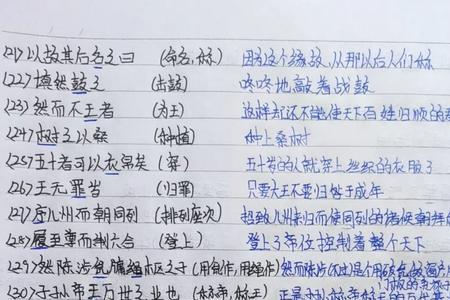 (21)以故其后名之曰 (命名,称) 因为这个缘故,从那以后人们称
(22)填然鼓之 (击鼓) 咚咚地敲着战鼓
(23)然而不王者 (为王) 这样却还不能使天下百姓归顺的
(24)树之以桑 (种植) 种上桑树
(25)五十者可以衣帛矣 (穿) 五十岁的人就穿上丝织的衣服了
(26)王无罪岁 (归罪) 只要大王不要归咎于成年
(27)序八州而朝同列 (排列座次) 招致八州归而使同列的诸候朝拜
(28)履至尊而制六合 (登上) 登上了帝位控制着整个天下
(29)然陈涉瓮牖绳枢之子 (用瓮作,用绳作) 然而陈涉是个用破瓮
(30)子孙帝王万世之业也 (称帝,称王)